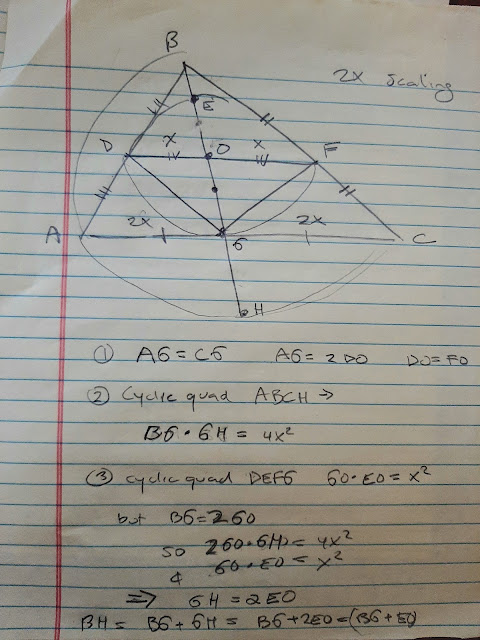 B
2x Scaling
E
D x O x F
2x 2x
A G C
H
① AG = CG AG = 2DO DO = FO
② Cyclic quad ABCH →
BG • GH = 4x²
③ cyclic quad DEFG GO • EO = x²
but BG = 2GO
so 2GO • GH = 4x²
& GO • EO = x²
⇒ GH = 2EO
BH = BG + GH = BG + 2EO = (BG + EO)